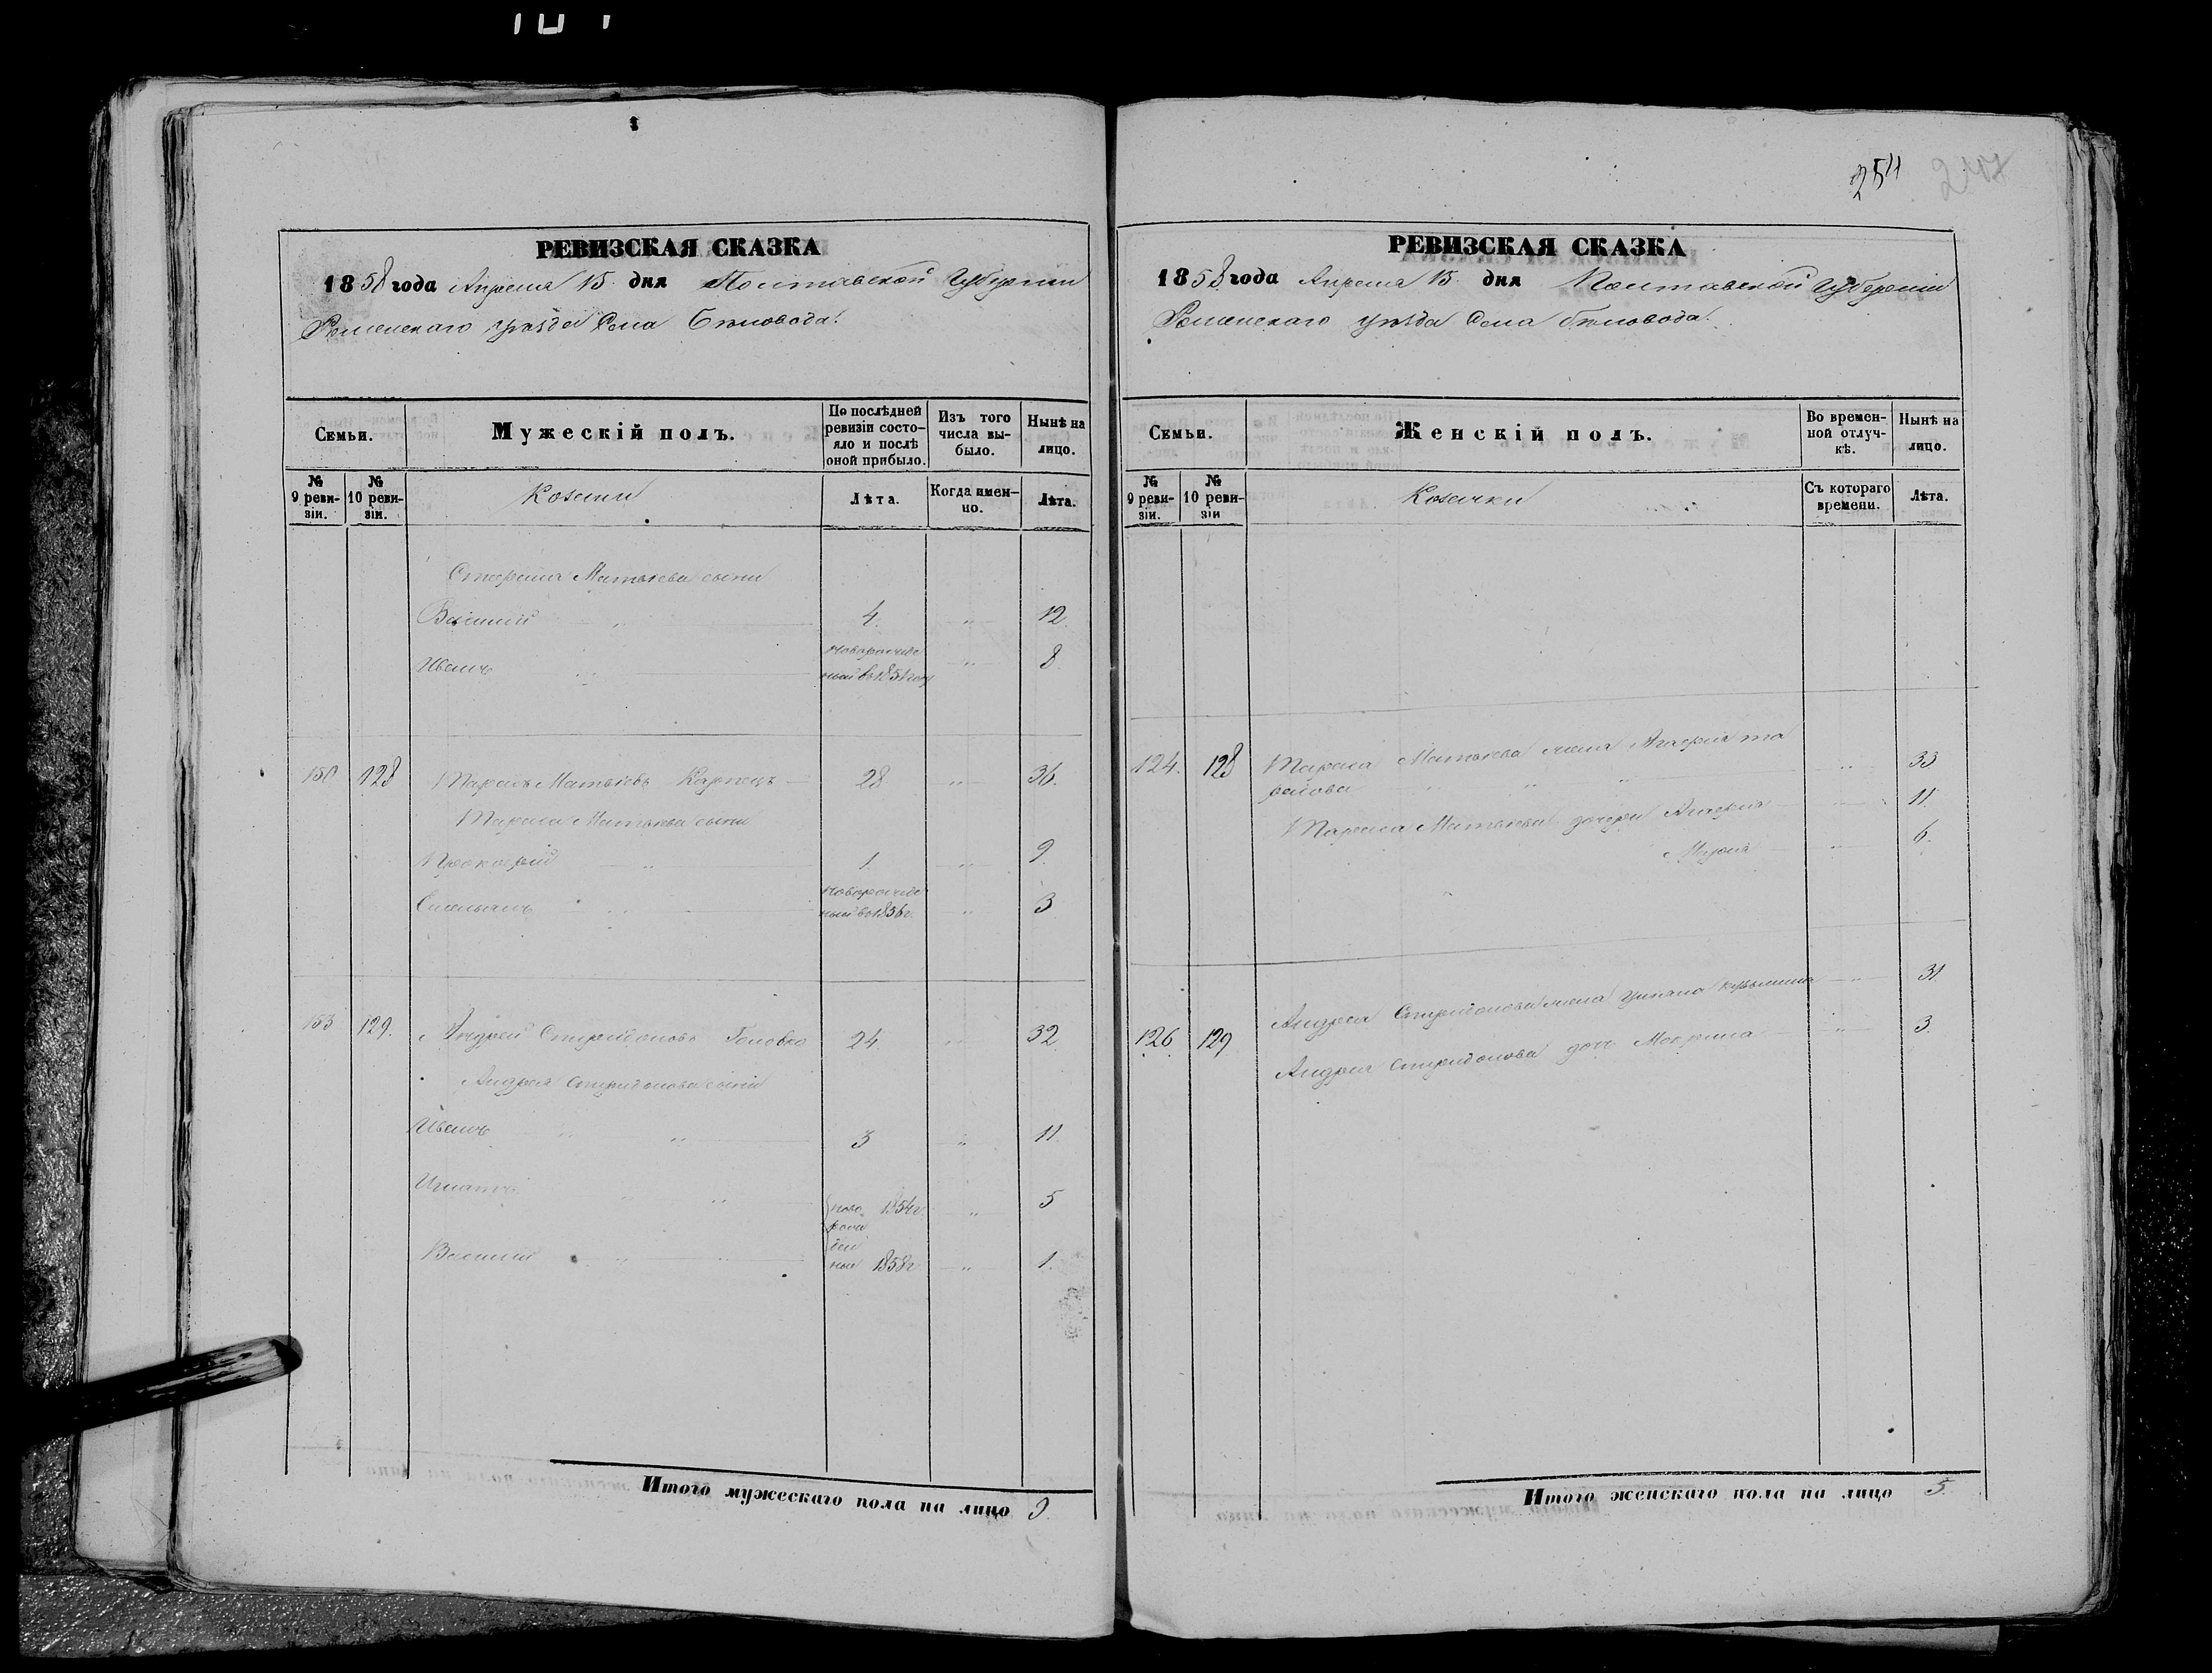 254
РЕВИЗСКАЯ СКАЗКА
1858 года Апреля 15 дня Полтавской Губернии
Роменского уѣзда Села Бѣловода.
Семьи.
Мужескій полъ.
По послѣдней ревизіи состояло и послѣ оной прибыло.
Изъ того числа выбыло.
Нынѣ на лицо.
№ 9 ревизіи.
№ 10 ревизіи.
Козаки
Лѣта.
Когда именно.
Лѣта.
Матвѣева сыни
Василий " 4. " 12.
Иванъ " новорожденный въ 1851 году " 8
128 Тарасъ Матвѣевъ Карпецъ 28 " 36.
Тараса Матвѣева сыни
Прокофій " 1. " 9
" новорожденный въ 1856 г. " 3
153 129. Андрей Спиридоновъ Головко 24. " 32
Андрея Спиридонова сыни
Иванъ " " 3 " 11
Игнатъ " " новорожденные 1854 г. " 5
Василий " " 1858 г. " 1.
Итого мужескаго пола на лицо 9
РЕВИЗСКАЯ СКАЗКА
1858 года Апреля 15 дня Полтавской Губерніи
Роменского уѣзда Села Бѣловода.
Семьи.
Женскій полъ.
Во временной отлучкѣ.
Нынѣ на лицо.
№ 9 ревизіи.
№ 10 ревизіи
Козачки
Съ котораго времени.
Лѣта.
124. 128 Тараса Матвѣева жена Агафия
" " " 33
Тараса Матвѣева дочери Агафия " 11.
Мария " 6.
126 129 Андрея Спиридонова жена Ульяна " 31
Андрея Спиридонова дочь Мокрина " 3.
Итого женскаго пола на лицо 5.